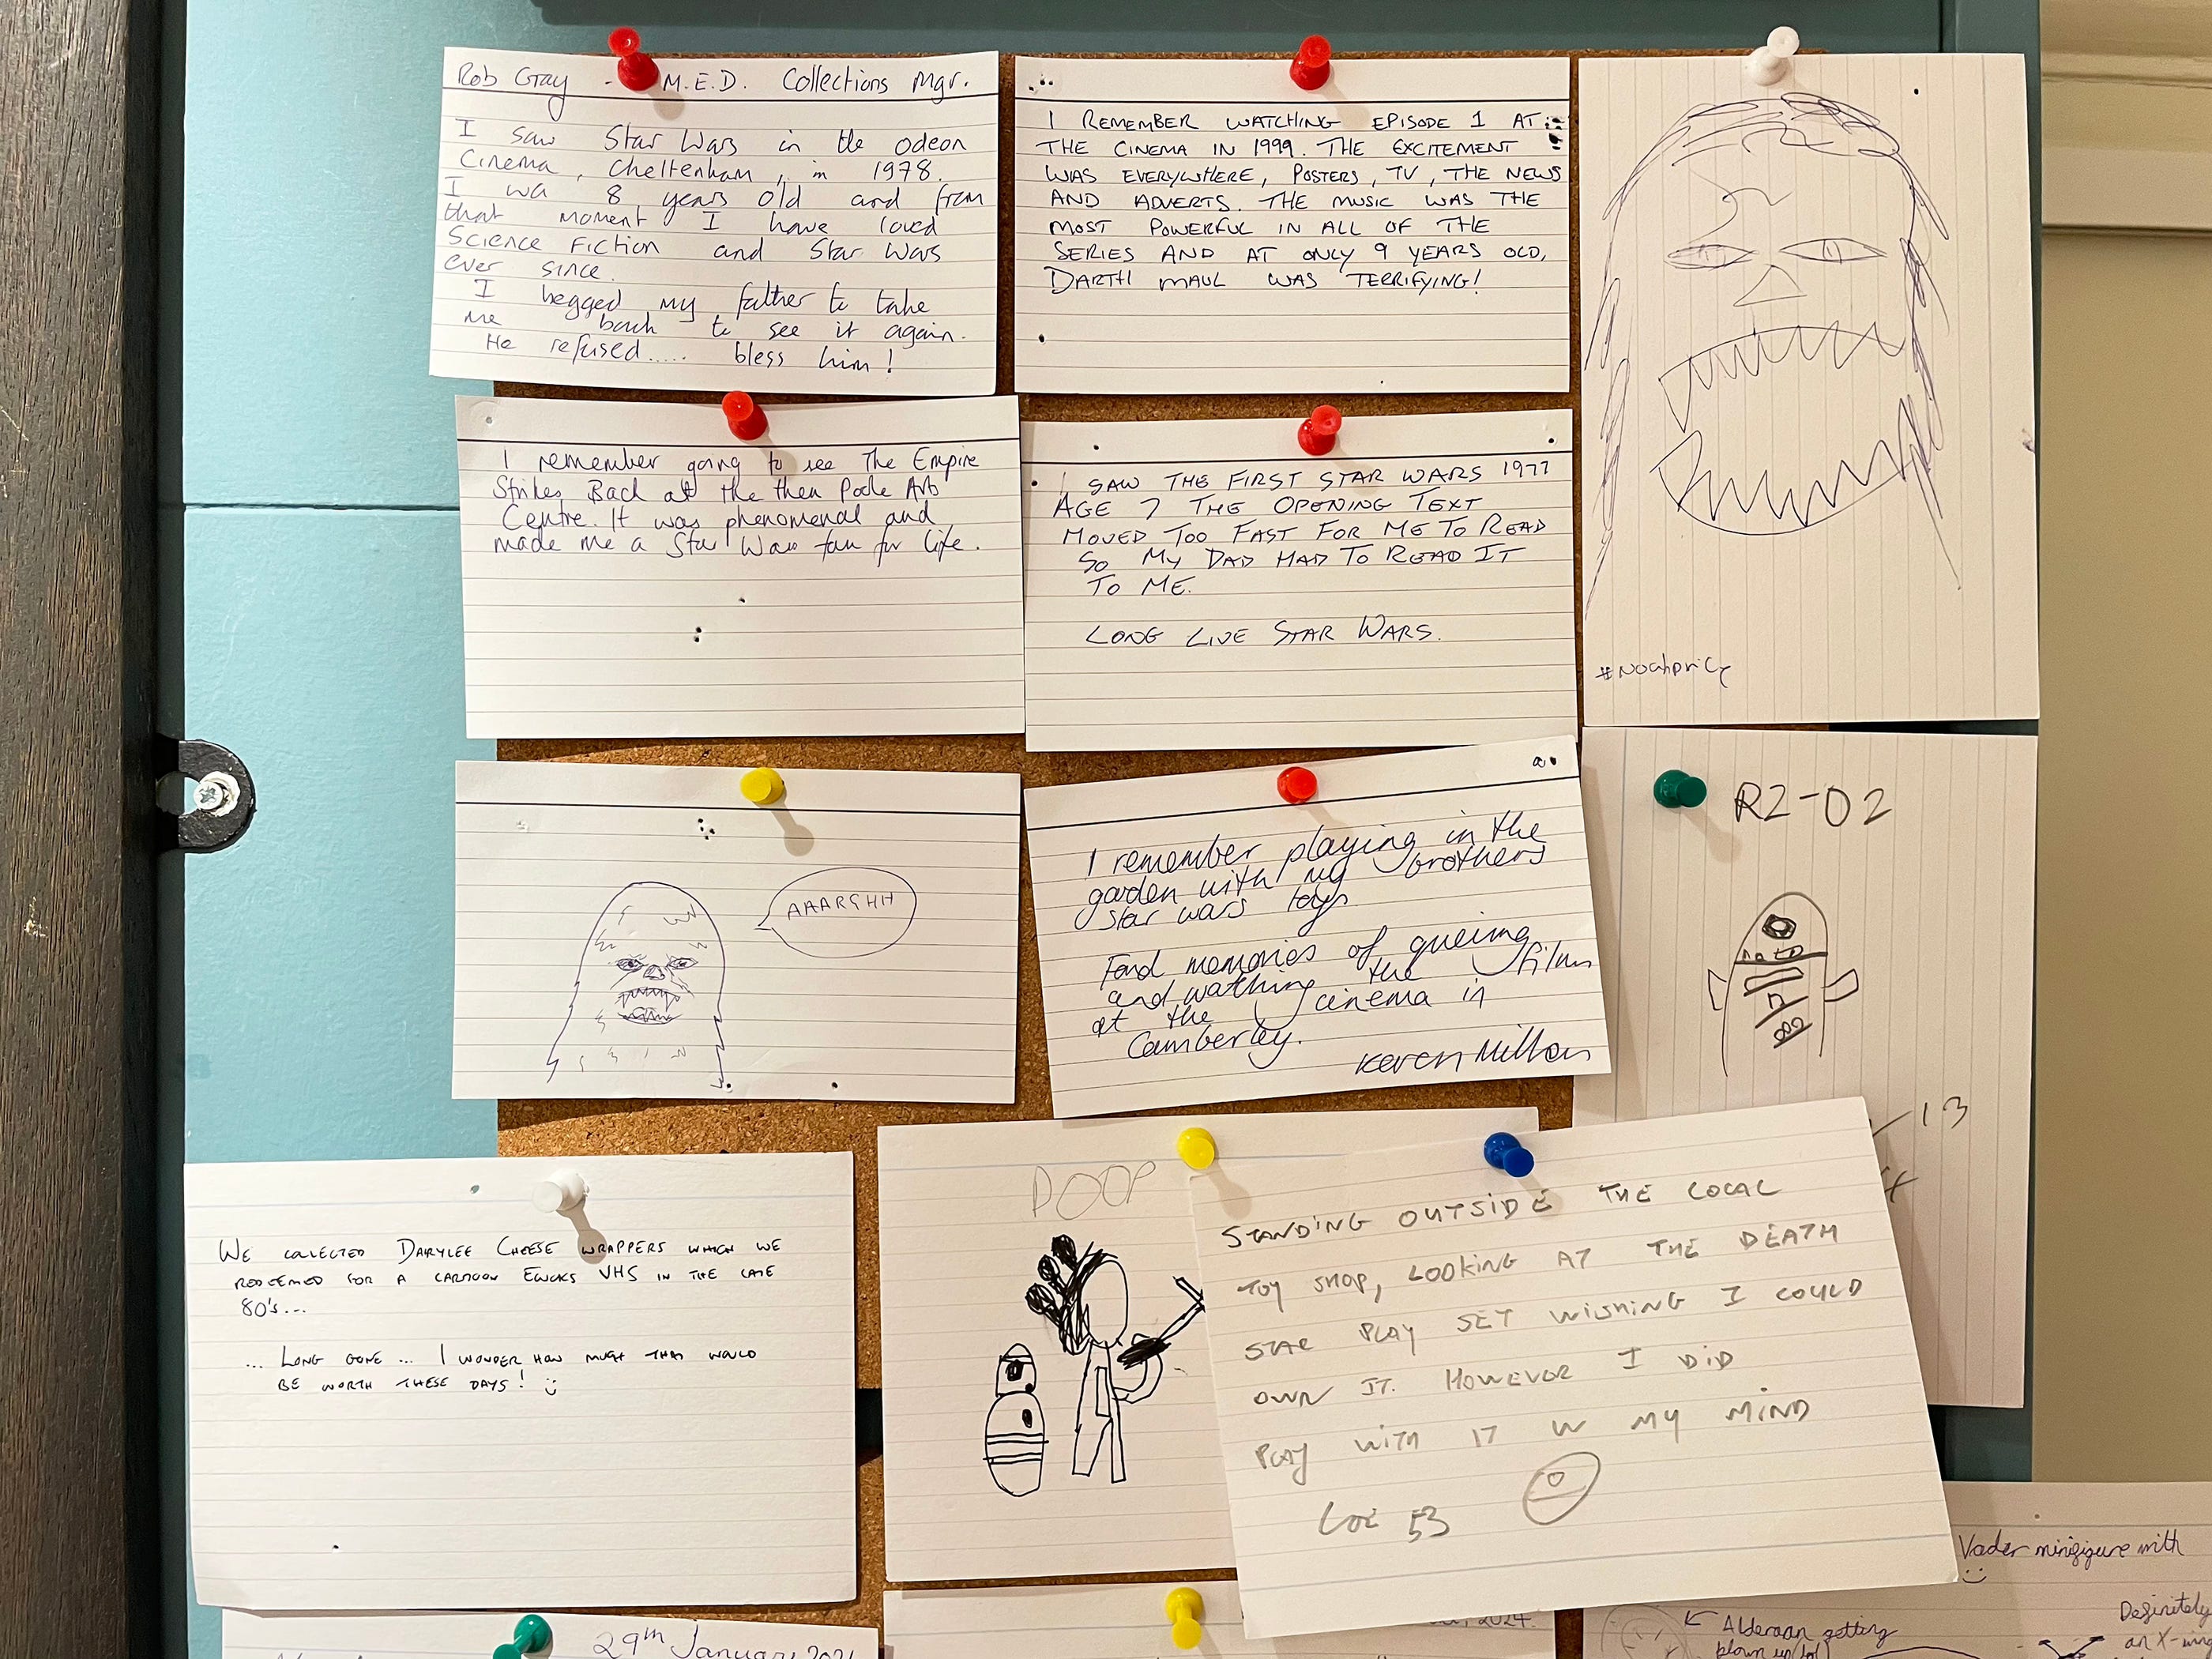 Rob Gray - M.E.D. Collections Mgr.
I saw Star Wars in the odeon
Cinema, Cheltenham, in 1978.
I wa 8 years old and from
that moment I have loved
Science Fiction and Star Wars
ever since.
I begged my father to take
me back to see it again.
He refused..... bless him!
I REMEMBER WATCHING EPISODE 1 AT
THE CINEMA IN 1999. THE EXCITEMENT
WAS EVERYWHERE, POSTERS, TV, THE NEWS
AND ADVERTS. THE MUSIC WAS THE
MOST POWERFUL IN ALL OF THE
SERIES AND AT ONLY 9 YEARS OLD,
DARTH MAUL WAS TERRIFYING!
#Noahprice
I remember going to see The Empire
Strikes Back at the then Poole Arts
Centre. It was phenomenal and
made me a Star Wars fan for life.
I SAW THE FIRST STAR WARS 1977
AGE 7 THE OPENING TEXT
MOVED TOO FAST FOR ME TO READ
SO MY DAD HAD TO READ IT
TO ME.
LONG LIVE STAR WARS.
AAARGHH
I remember playing in the
garden with my brothers
star wars toys
Fond memories of queing
and watching the film
at the cinema in
Camberley.
Karen Millan
R2-D2
13
WE COLLECTED DAIRYLEE CHEESE WRAPPERS WHICH WE
REDEEMED FOR A CARTOON EWOKS VHS IN THE LATE
80's...
... LONG GONE ... I WONDER HOW MUCH THAT WOULD
BE WORTH THESE DAYS! :)
POOP
STANDING OUTSIDE THE LOCAL
TOY SHOP, LOOKING AT THE DEATH
STAR PLAY SET WISHING I COULD
OWN IT. HOWEVER I DID
PLAY WITH IT IN MY MIND
53
Vader minifigure with
:)
Alderaan getting
blown up (lol)
Definitely
an X-wing
29th January
2024.